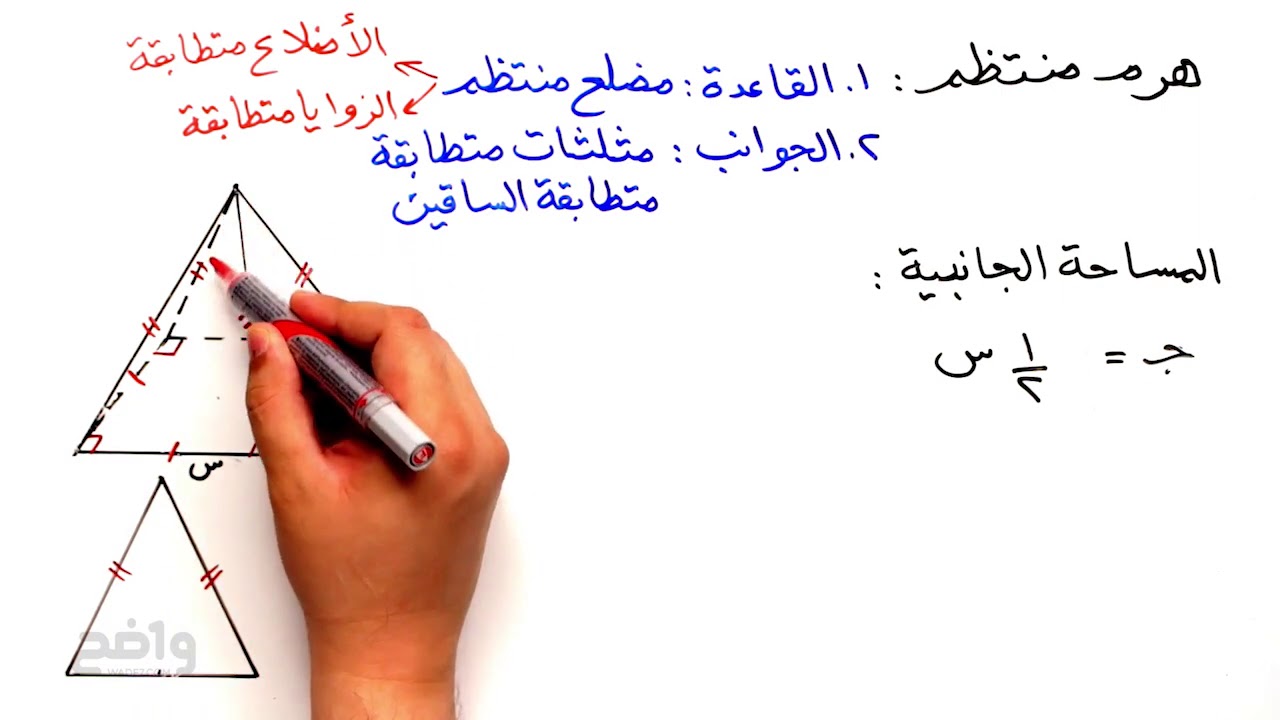 هرم منتظم : ١. القاعدة : مضلع منتظم
الأضلاع متطابقة
الزوايا متطابقة
٢. الجوانب : مثلثات متطابقة
متطابقة الساقين
المساحة الجانبية :
جـ = ١/٢ س
س
واضح
WADE7.COM